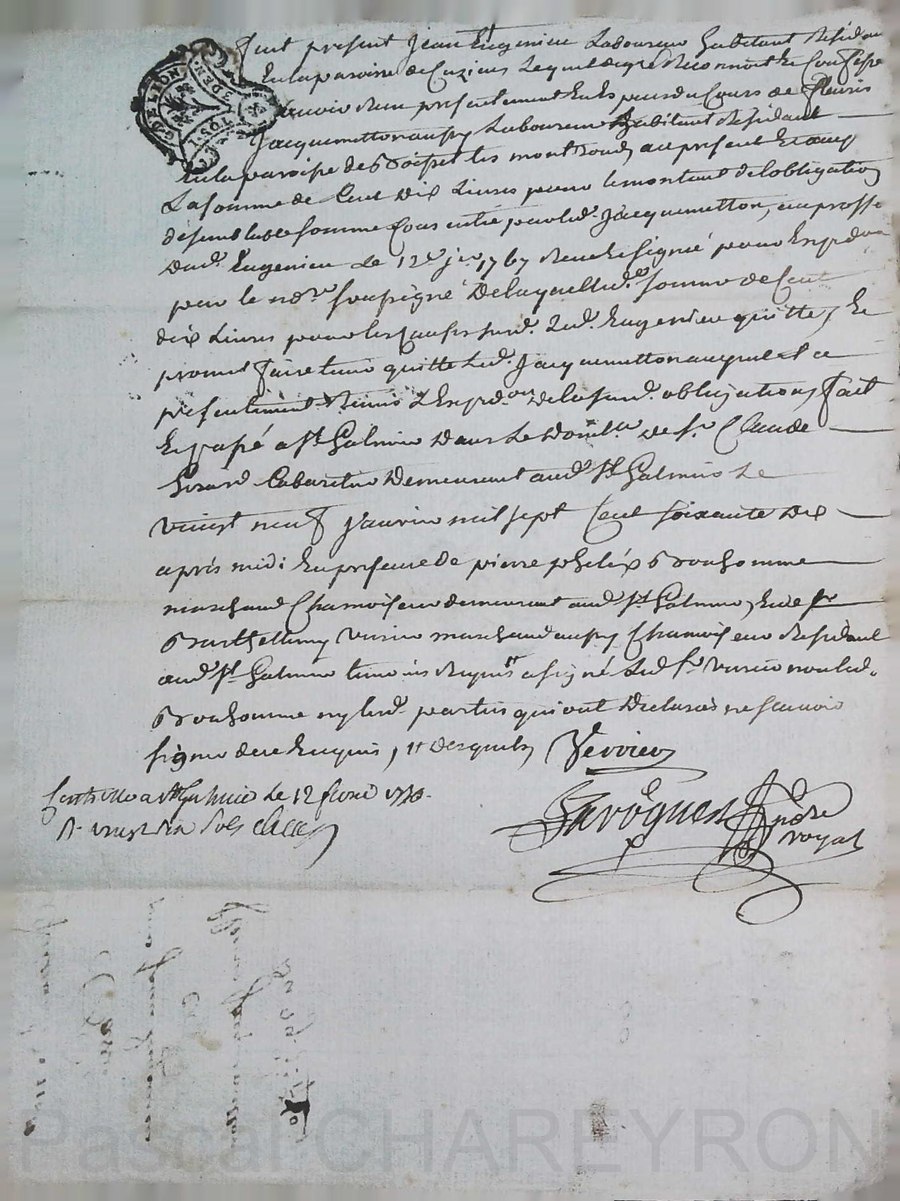 GEN. LION
2 SOLS
3 DEN.
fut present Jean Eugenieu Laboureur habitant Résidant
En la paroisse de Cuzieu Lequel de gré Reconnoit Et Confesse
avoir Reçu presentement En Espèces du Cours de fleuris
Jacquemetton aussy Laboureur habitant & Résidant
En la paroisse de Boisset les montrond au present Et acup
La somme de Cent Dix Livres pour le montant de lobligation
de semblable somme Consentie par led. Jacquemetton, au proffit
Dud. Eugenieu le 12e Jer 1767 Reçue Et signé pour Expédon
par le nore soussigné De laquelle de somme de Cent
dix Livres pour les Causes susd. Led. Eugenieu quitte, Et
promet faire tenir quitte Led. Jacquemetton auquel Il a
presentement Remis L'Expedon De la susd. obligation, fait
Et passé a St Galmier Dans Le Domlle de Sr Claude
Girard Cabaretier Demeurant aud. St Galmier Le
vingt neuf Janvier mil sept Cent soixante Dix
après midi En presence de pierre phelix Bonhomme
marchand Chamoiseur demeurant aud. St Galmier, Et de Sr
Barthellemy Verrier marchand aussy Chamoiseur Résidant
aud. St Galmier temoins Requis a signé Led. Sr Verrier non led.
Bonhomme ny lesd. parties qui ont Declaré ne scavoir
signer de ce Enquis, et Requis, Verrier
Controllé a St Galmier Le 12 fevrier 1770.
R. vingt six sols
Javogues
nore
royal
Pascal CHAREYRON